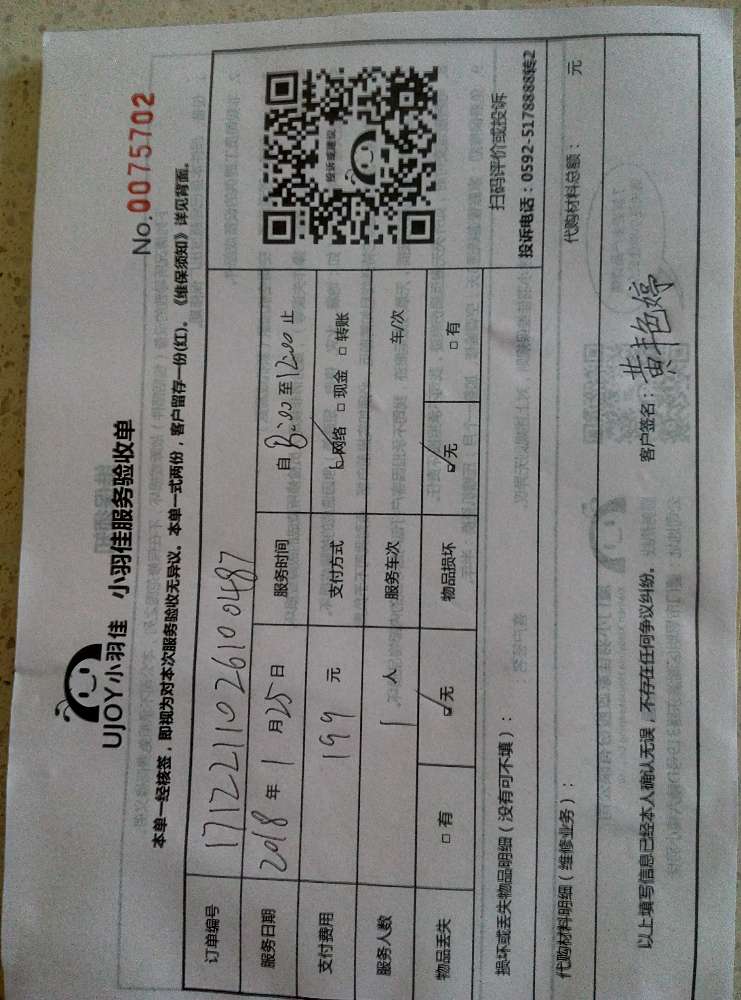 UJOY小羽佳 小羽佳服务验收单
No.0075702
本单一经核签，即视为对本次服务验收无异议。本单一式两份，客户留存一份(红)。《维保须知》详见背面。
订单编号 171221102610 0487
服务日期 2018 年 1 月 25 日 服务时间 自 8:00 至 12:00 止
支付费用 199 元 支付方式 ☑网络 □现金 □转账
服务人数 1 人 服务车次 车/次
物品丢失 □有 ☑无 物品损坏 ☑无 □有
投诉或建议
扫码评价或投诉
损坏或丢失物品明细（没有可不填）：
投诉电话：0592-5178888转2
代购材料明细（维修业务）： 代购材料总额： 元
以上填写信息已经本人确认无误，不存在任何争议纠纷。 客户签名：黄艳婷